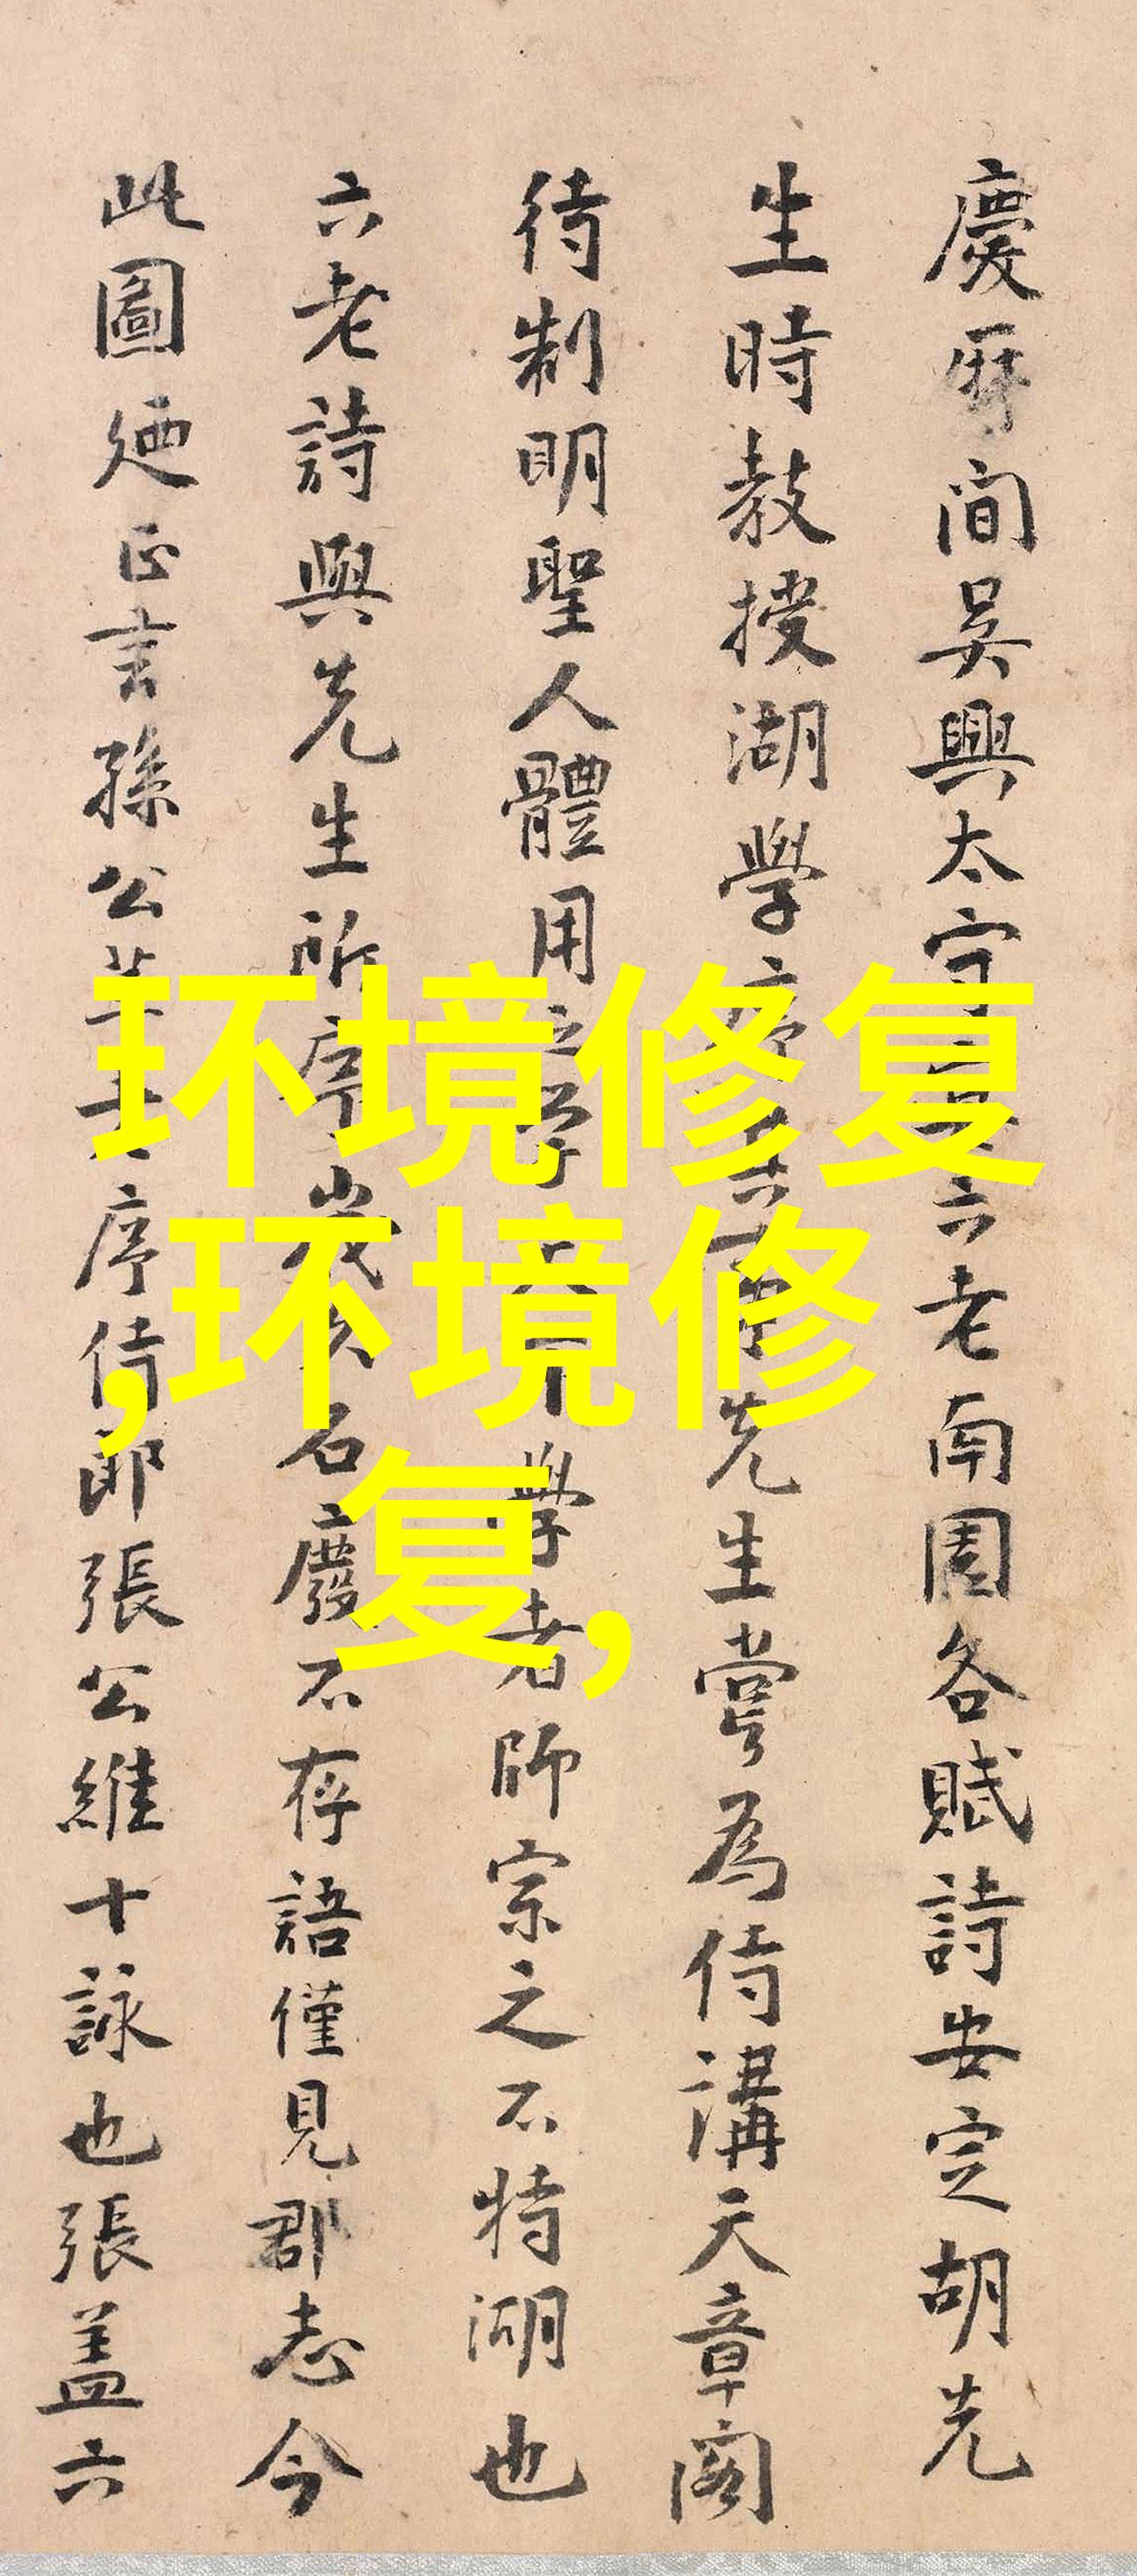 慶曆間吳興太守六老南園各賦詩安定胡先
生時教授湖學序其先生嘗為侍講天章閣
待制明聖人體用之學學者師宗之不特湖也
六老詩與先生所序歲久石廢不存語僅見郡志今
此圖廼正言孫公莘老序侍郎張公維十詠也張蓋六
环境修复
,环境修
复,